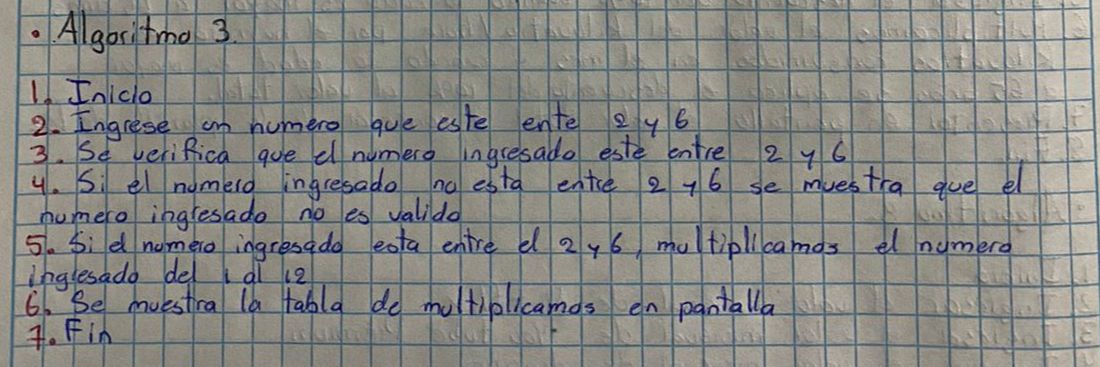 • Algoritmo 3.
1. Inicio
2. Ingrese un numero que este ente 2 y 6
3. Se verifica que el numero ingresado este entre 2 y 6
4. Si el numero ingresado no esta entre 2 y 6 se muestra que el
numero ingresado no es valido
5. Si el numero ingresado esta entre el 2 y 6, multiplicamos el numero
ingresado del 1 al 12
6. Se muestra la tabla de multiplicamos en pantalla
7. Fin